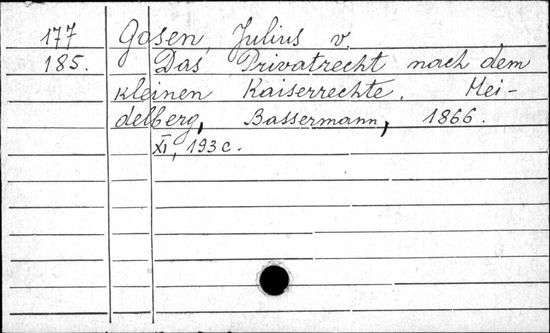 177 Gosen, Julius v.
185. Das Privatrecht nach dem
kleinen Kaiserrechte. Hei-
delberg, Bassermann, 1866.
XI, 193 c.